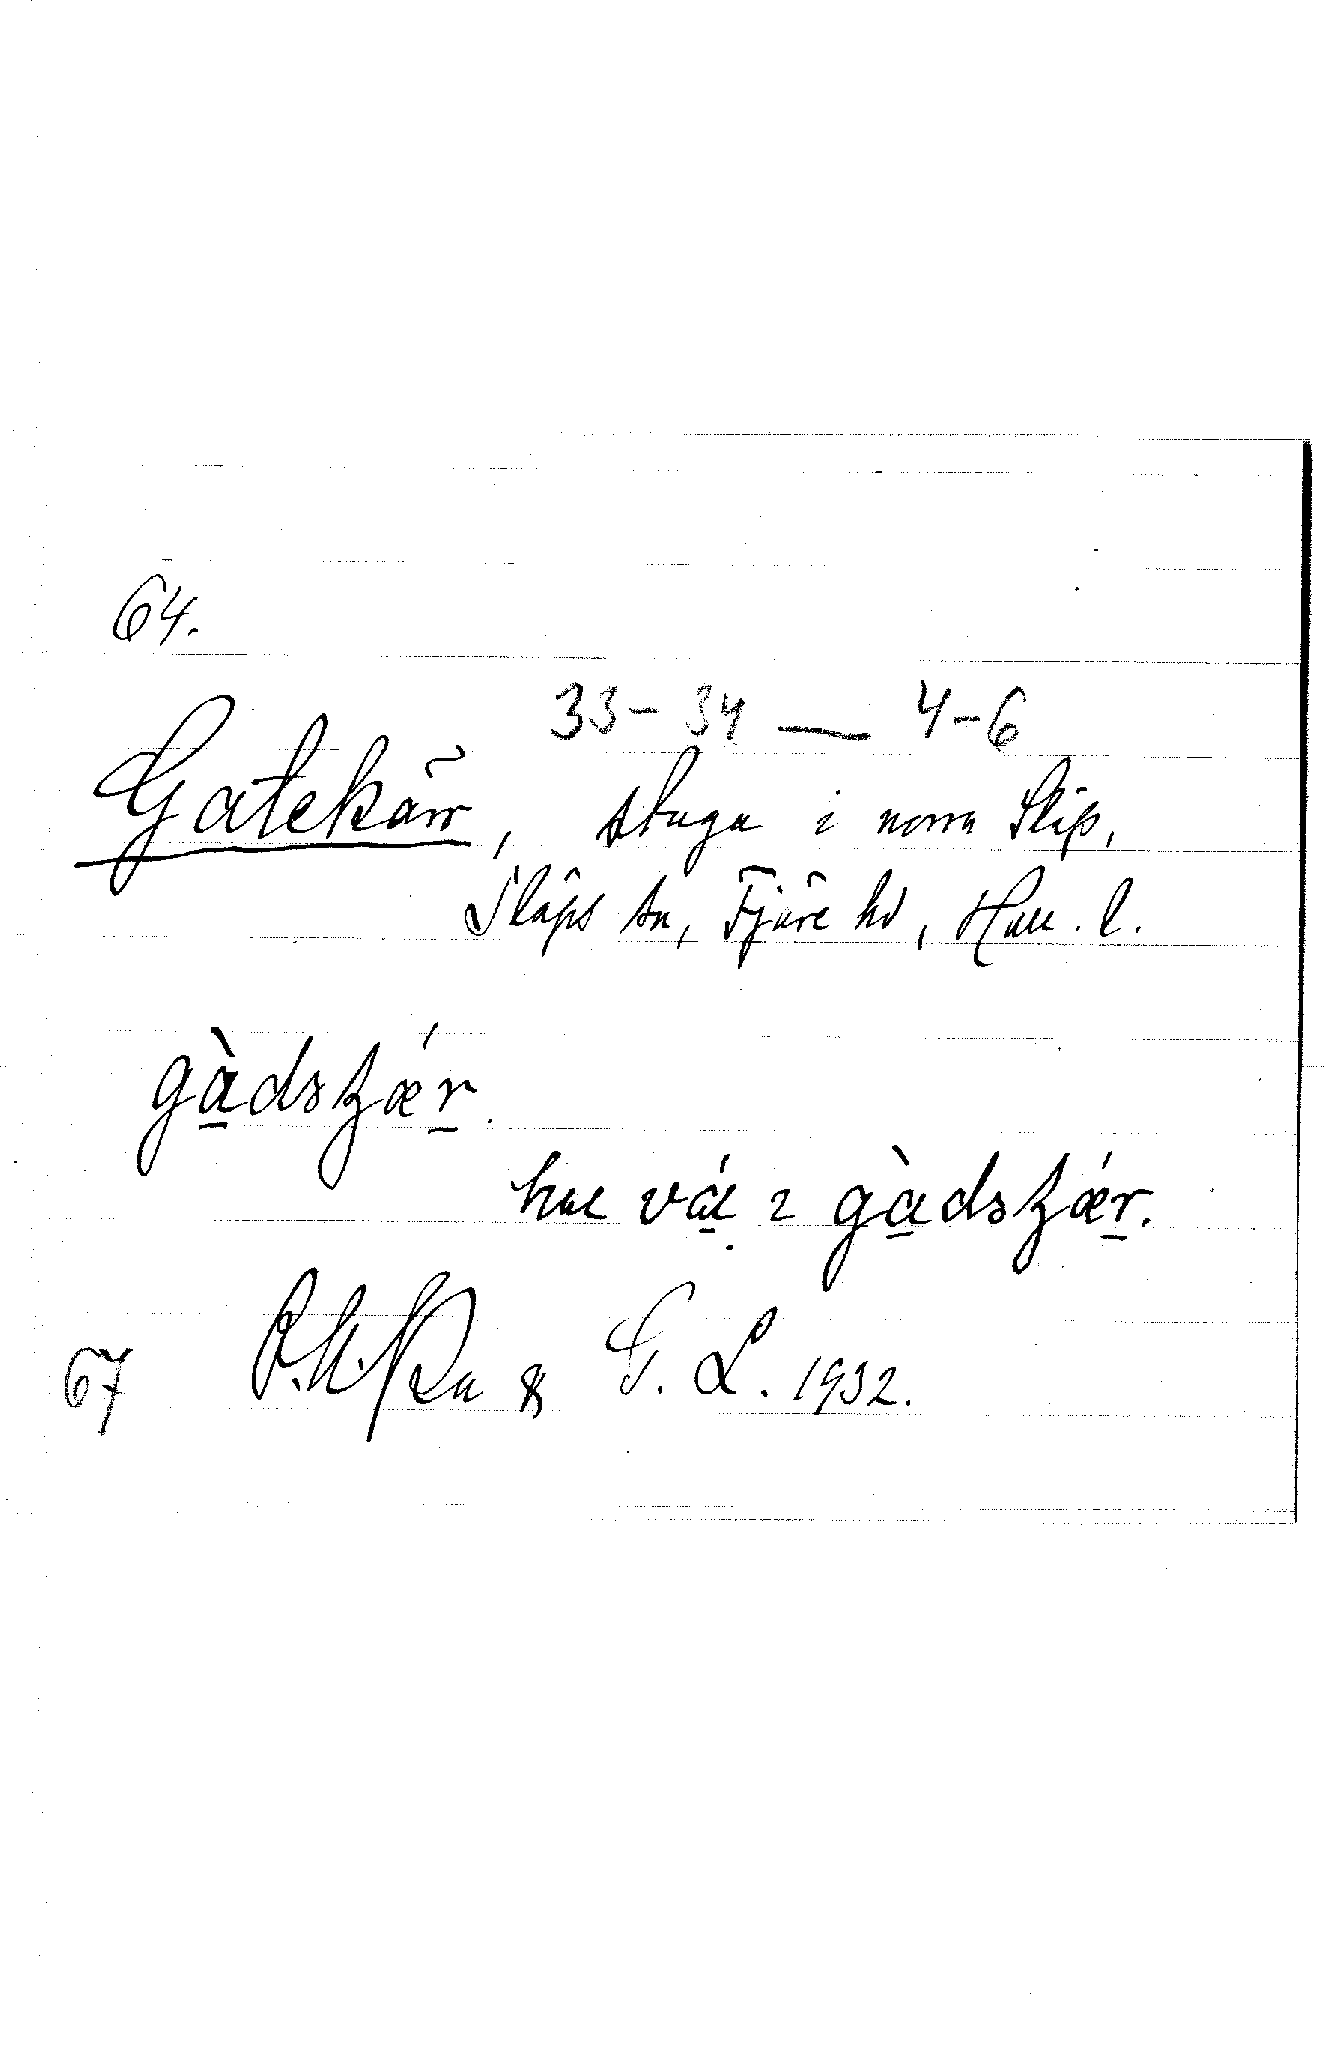 64.
33-34 — 4-6
Gatekärr, stuga i norra Släp,
Släps sn, Fjäre hd, Hall. l.
gàdəʓǽr.
hae vá i gàdəʓǽr.
67 & G. L. 1932.